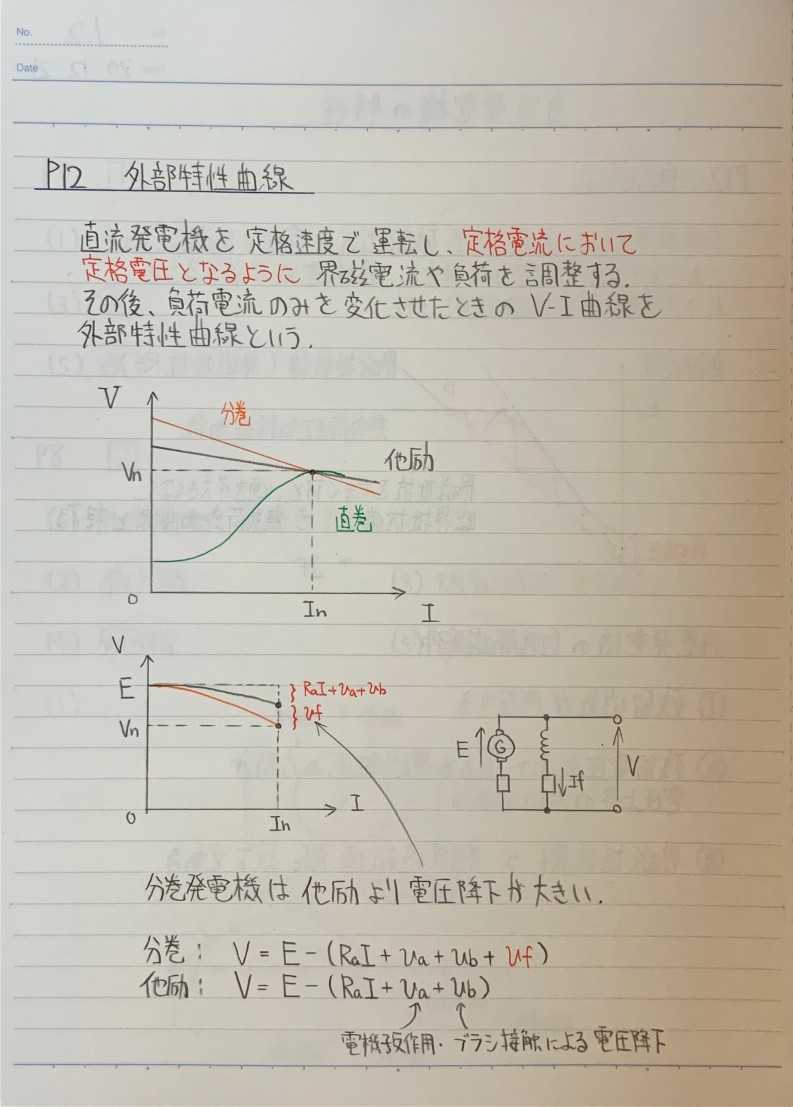 No.
Date
P12 外部特性曲線
直流発電機を定格速度で運転し、定格電流において
定格電圧となるように界磁電流や負荷を調整する.
その後、負荷電流のみを変化させたときの V-I曲線を
外部特性曲線という.
V
分巻
Vn
他励
直巻
0
In
I
V
E
RaI+va+vb
vf
Vn
0
In
I
E
G
If
V
分巻発電機は他励より電圧降下が大きい.
分巻: V = E - (RaI + va + vb + vf)
他励: V = E - (RaI + va + vb)
電機子反作用・ブラシ接触による電圧降下